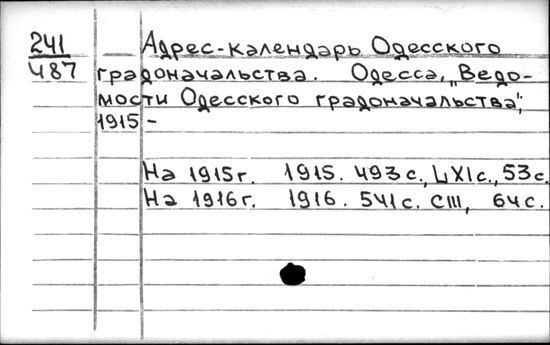 241
487
Адрес-календарь Одесского
градоначальства. Одесса, „Ведо-
мости Одесского градоначальства",
1915 -
На 1915г. 1915. 493с., LXIс., 53с.
На 1916г. 1916. 541с. CIII, 64с.